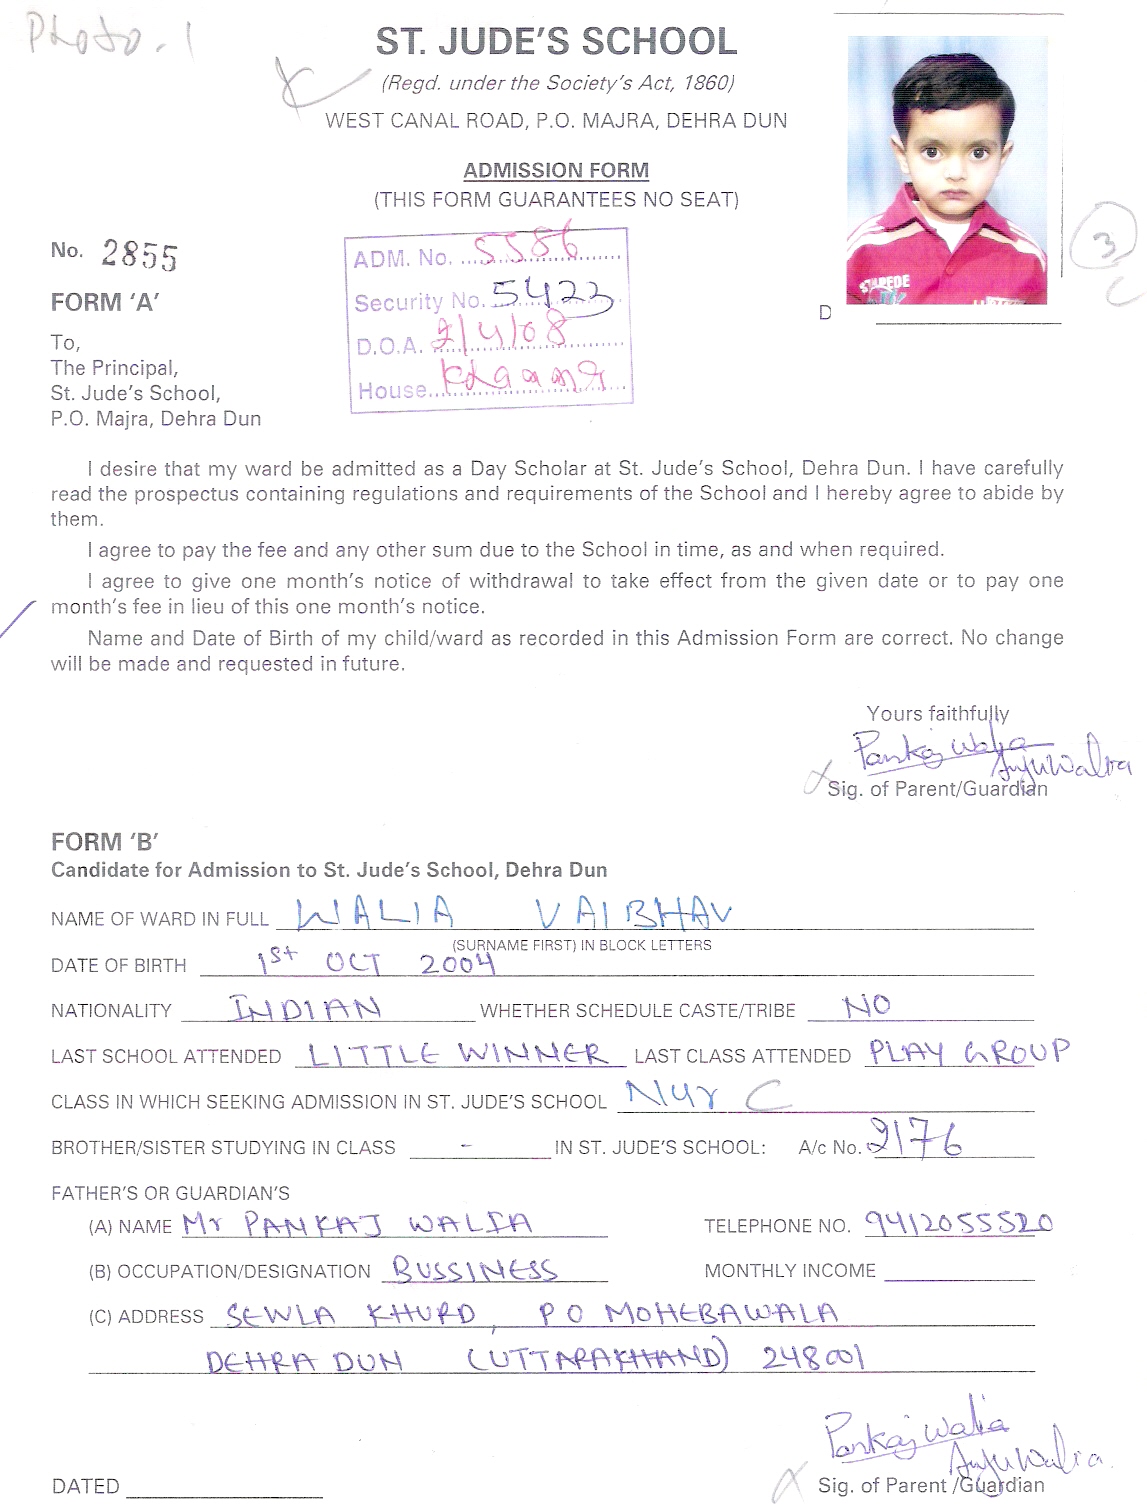 Photo. 1
ST. JUDE'S SCHOOL
(Regd. under the Society's Act, 1860)
WEST CANAL ROAD, P.O. MAJRA, DEHRA DUN
ADMISSION FORM
(THIS FORM GUARANTEES NO SEAT)
No. 2855
ADM. No. 5586
Security No. 5423
D.O.A. 2/4/08
House
3
D
STAPEDE
FORM 'A'
To,
The Principal,
St. Jude's School,
P.O. Majra, Dehra Dun
I desire that my ward be admitted as a Day Scholar at St. Jude's School, Dehra Dun. I have carefully
read the prospectus containing regulations and requirements of the School and I hereby agree to abide by
them.
I agree to pay the fee and any other sum due to the School in time, as and when required.
I agree to give one month's notice of withdrawal to take effect from the given date or to pay one
month's fee in lieu of this one month's notice.
Name and Date of Birth of my child/ward as recorded in this Admission Form are correct. No change
will be made and requested in future.
Yours faithfully
Pankaj Walia Anju Walia
Sig. of Parent/Guardian
FORM 'B'
Candidate for Admission to St. Jude's School, Dehra Dun
NAME OF WARD IN FULL WALIA VAIBHAV
(SURNAME FIRST) IN BLOCK LETTERS
DATE OF BIRTH 1st OCT 2004
NATIONALITY INDIAN WHETHER SCHEDULE CASTE/TRIBE NO
LAST SCHOOL ATTENDED LITTLE WINNER LAST CLASS ATTENDED PLAY GROUP
CLASS IN WHICH SEEKING ADMISSION IN ST. JUDE'S SCHOOL Nur C
BROTHER/SISTER STUDYING IN CLASS - IN ST. JUDE'S SCHOOL: A/c No. 2176
FATHER'S OR GUARDIAN'S
(A) NAME Mr PANKAJ WALIA TELEPHONE NO. 9412055520
(B) OCCUPATION/DESIGNATION BUSSINESS MONTHLY INCOME
(C) ADDRESS SEWLA KHURD, P O MOHEBAWALA
DEHRA DUN (UTTARAKHAND) 248001
Pankaj Walia
Anju Walia
DATED Sig. of Parent /Guardian